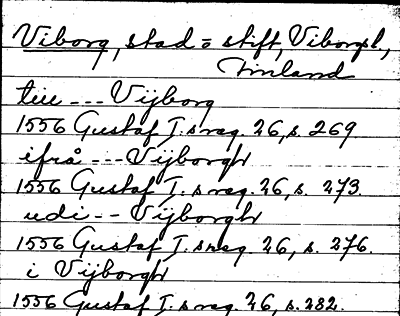 Viborg, stad o stift, Viborgs l.,
Finland
till --- Vijborg
1556 Gustaf I:s reg. 26, s. 269
ifrå --- Vijborgh
1556 Gustaf I:s reg. 26, s. 273.
udi -- Vijborgh
1556 Gustaf I:s reg. 26, s. 276.
i Vijborgh
1556 Gustaf I:s reg. 26, s. 282.